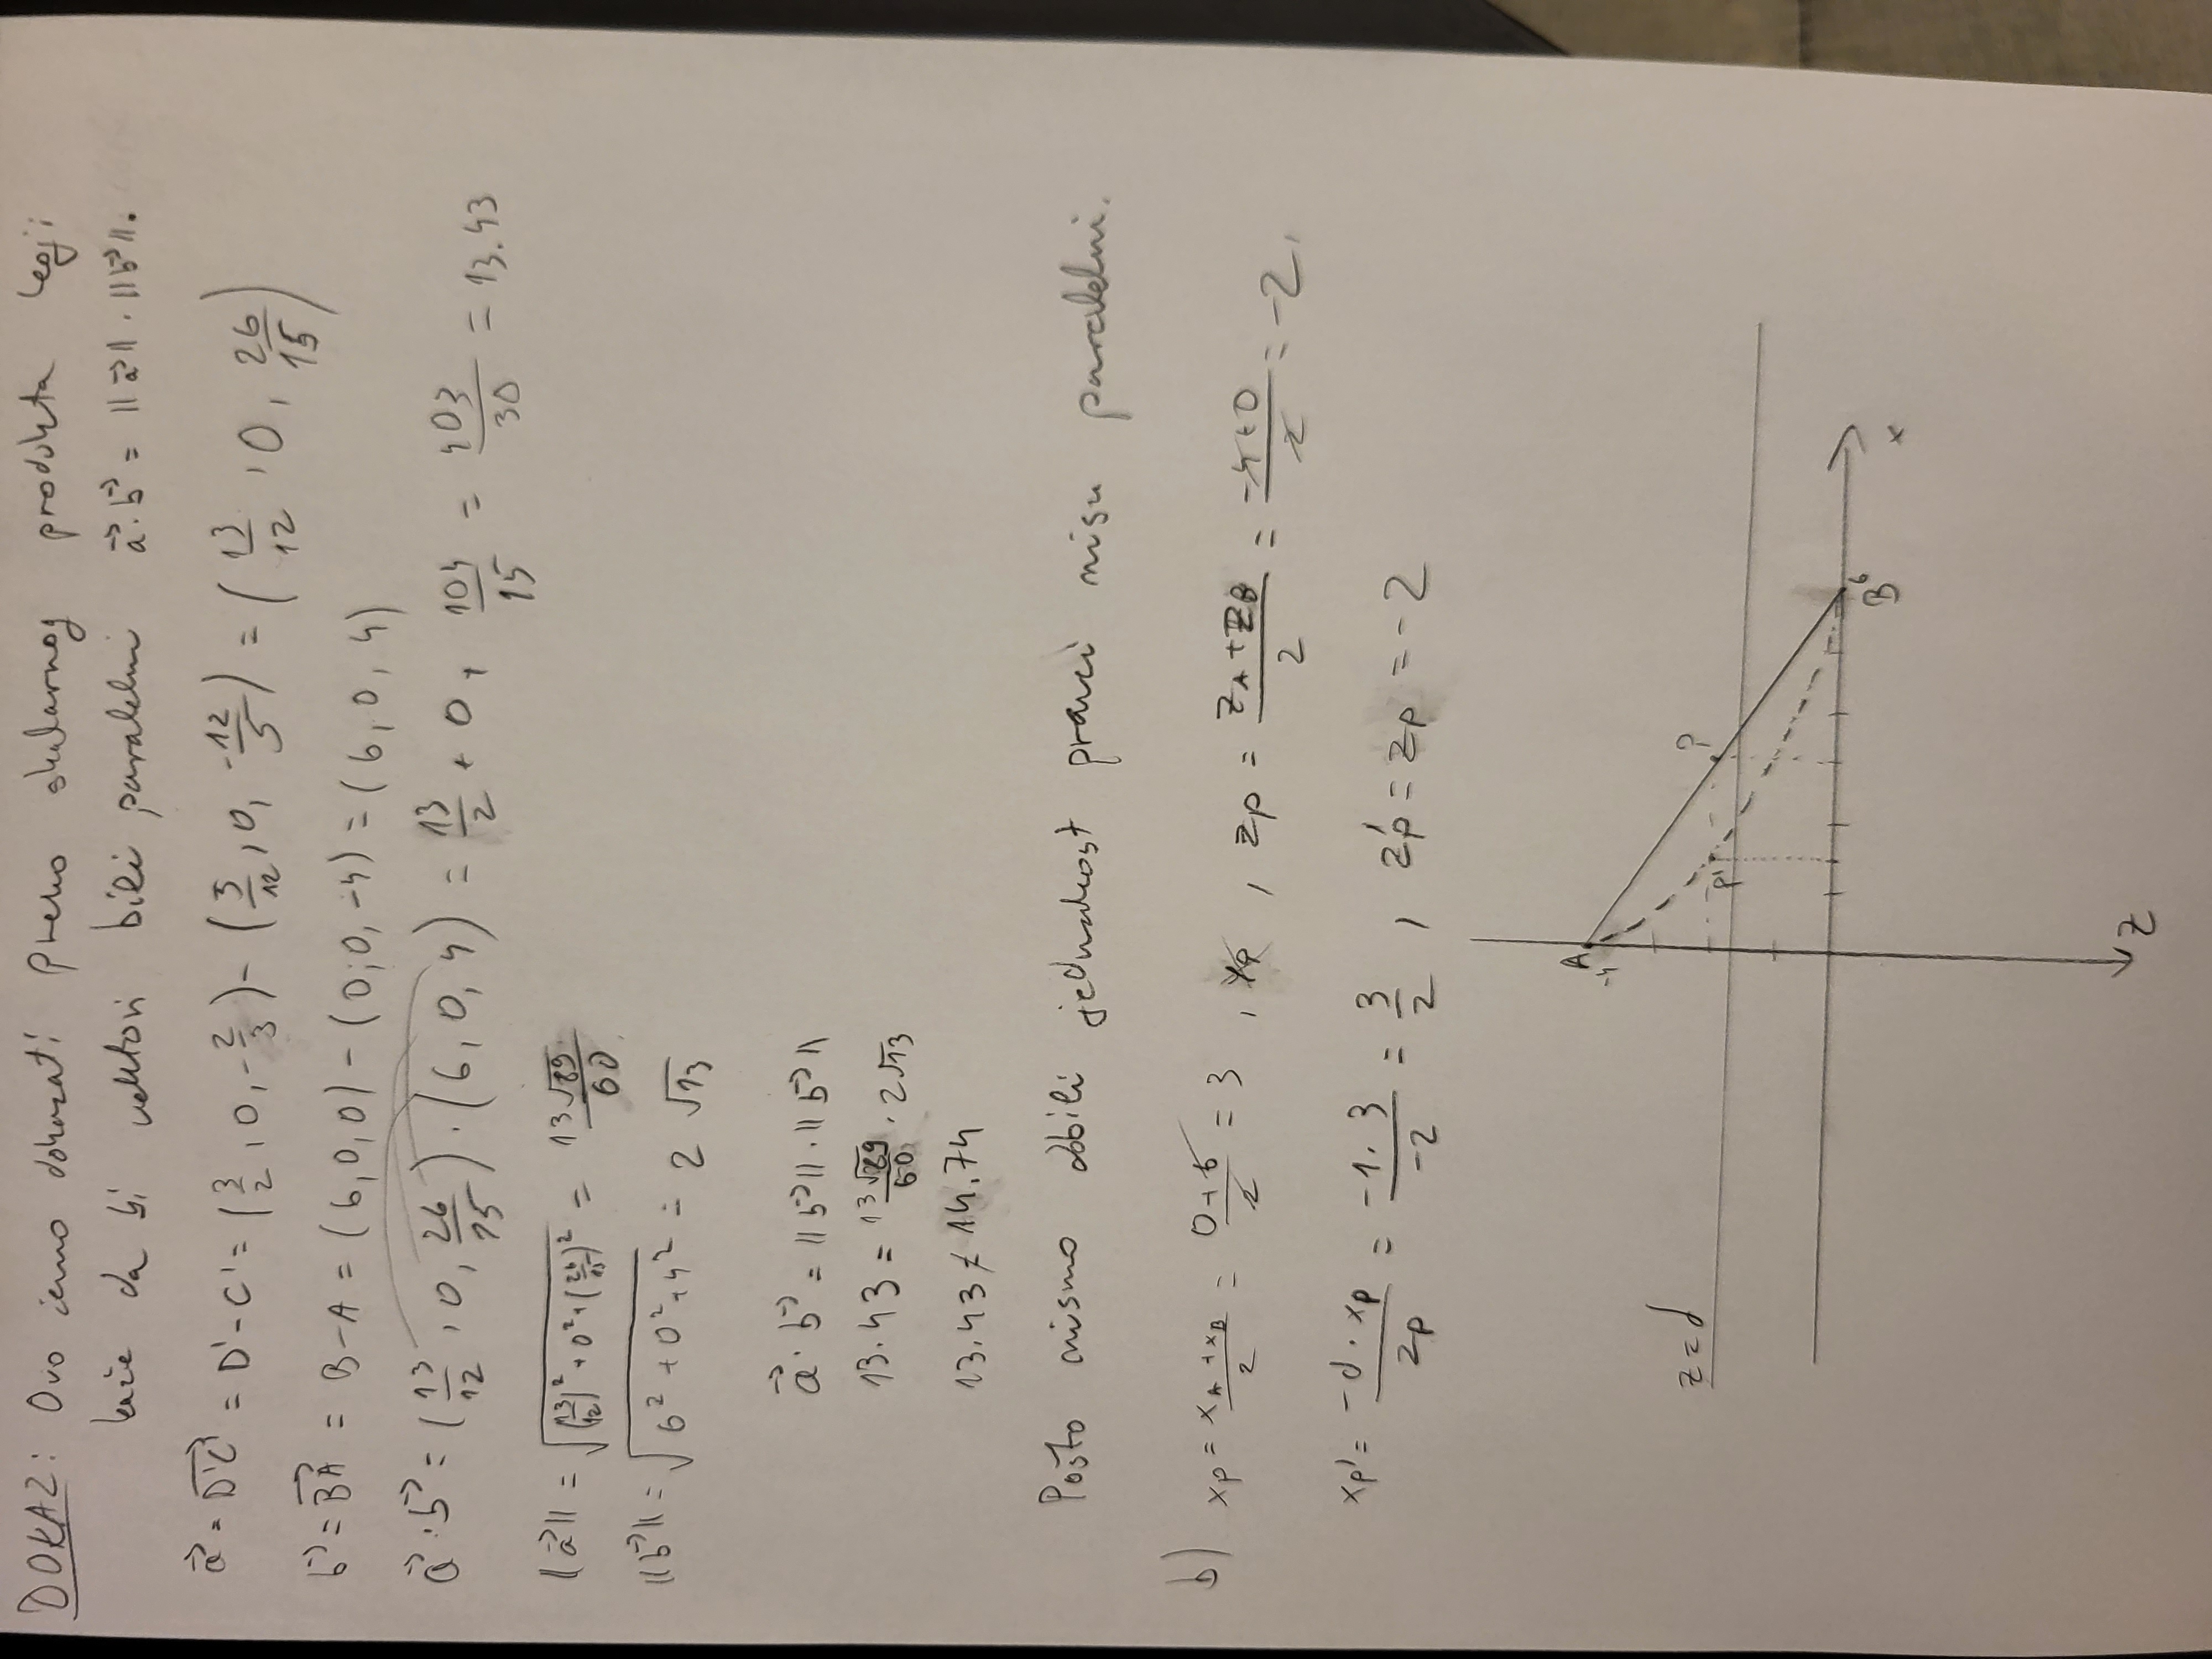 DOKAZ: Ovo ćemo dokazati preko skalarnog produkta koji
kaže da bi vektori bili paralelni a⃗·b⃗ = ||a⃗||·||b⃗||.
a⃗ = D'C'⃗ = D'-C' = (3/2, 0, -2/3) - (5/12, 0, -12/5) = (13/12, 0, 26/15)
b⃗ = BA⃗ = B-A = (6,0,0) - (0,0,-4) = (6,0,4)
a⃗·b⃗ = (13/12, 0, 26/15)·(6,0,4) = 13/2 + 0 + 104/15 = 403/30 = 13.43
||a⃗|| = √((13/12)² + 0² + (26/15)²) = 13√89/60
||b⃗|| = √(6² + 0² + 4²) = 2√13
a⃗·b⃗ = ||b⃗||·||b⃗||
13.43 = 13√89/60 · 2√13
13.43 ≠ 14.74
Pošto nismo dobili jednakost pravci nisu paralelni.
b) xp = (xA + xB)/2 = (0+6)/2 = 3, , zp = (zA + zB)/2 = (-4+0)/2 = -2,
xp' = (-d·xp)/zp = (-1·3)/-2 = 3/2, z'p = zp = -2
A
-4
z=d
P
P'
B 6
x
z